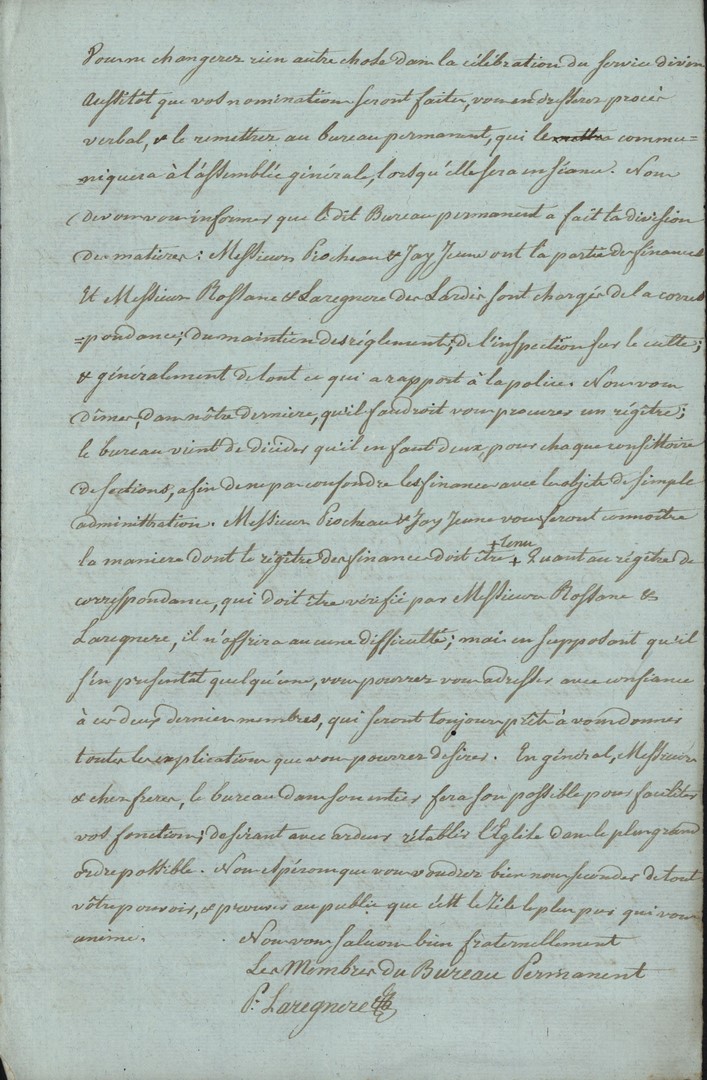 Pour ne changerez rien autre chose dans la célébration du service divin
Aussitôt que vos nominations seront faites, vous en dresserez procès
verbal, & le remettrez au bureau permanent, qui le commu=
=niquera à l'assemblée générale, lorsqu'elle sera en séance. Nous
devons vous informer que le dit Bureau permanent a fait la division
des matières: Messieurs Rocheau & Jay Jeune ont la partie des finances
Et Messieurs Rossane & Laregnere des Lardis sont chargés de la corres
=pondance; du maintien des réglements; de l'inspection sur le culte;
& généralement de tout ce qui a rapport à la police. Nous vous
dîmes, dans nôtre derniere, qu'il faudroit vous procurer un régître;
le bureau vient de décider qu'il en faut deux, pour chaque consistoire
de sections, afin de ne pas confondre les finances avec les objets de simple
administration. Messieurs Rocheau & Jay Jeune vous feront connoître
la maniere dont le régître des finances doit être + tenu + Quant au régître de
correspondance, qui doit être vérifié par Messieurs Rossane &
Laregnere, il n'offrira aucune difficulté; mais en supposant qu'il
s'en présentât quelqu'une, vous pourrez vous adresser avec confiance
à ces deux derniers membres, qui seront toujours prêts à vous donner
toutes les explications que vous pourrez desirer. En général, Messieurs
& chers freres, le bureau dans son entier fera son possible pour faciliter
vos fonctions; desirant avec ardeur rétablir l'Eglise dans le plus grand
ordre possible. Nous espérons que vous voudrez bien nous seconder de tout
vôtre pouvoir, & prouver au public que c'est le Zèle le plus pur qui vous
anime.
Nous vous saluons bien fraternellement
Les Membres du Bureau Permanent
P. Laregnere